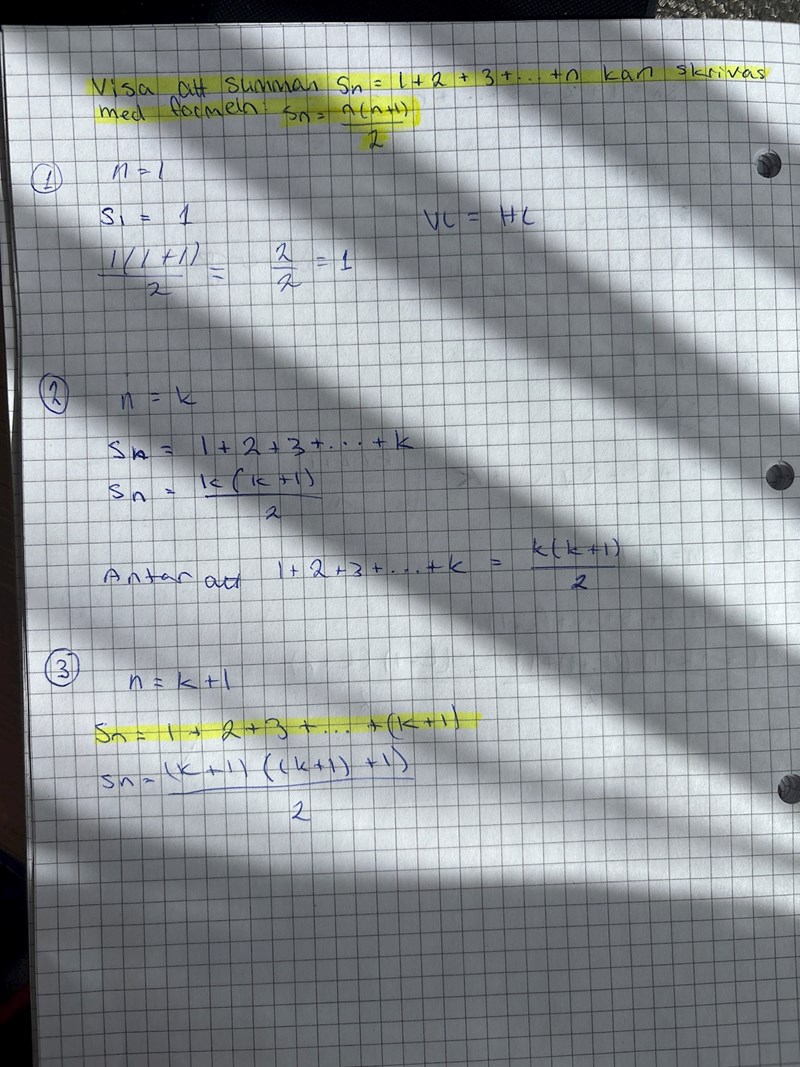 Visa att summan Sn = 1+2+3+...+n kan skrivas
med formeln: Sn = n(n+1)/2
① n=1
S1 = 1 VL = HL
1(1+1)/2 = 2/2 = 1
② n = k
Sn = 1+2+3+...+k
Sn = k(k+1)/2
Antar att 1+2+3+...+k = k(k+1)/2
③ n = k+1
Sn = 1+2+3+...+(k+1)
Sn = (k+1)((k+1)+1)/2